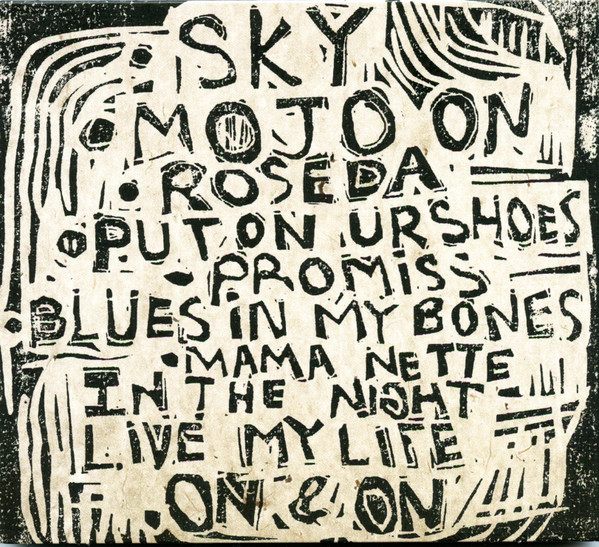 SKY
MOJO ON
ROSEDA
PUT ON UR SHOES
PROMISS
BLUES IN MY BONES
MAMA NETTE
IN THE NIGHT
LIVE MY LIFE
ON & ON